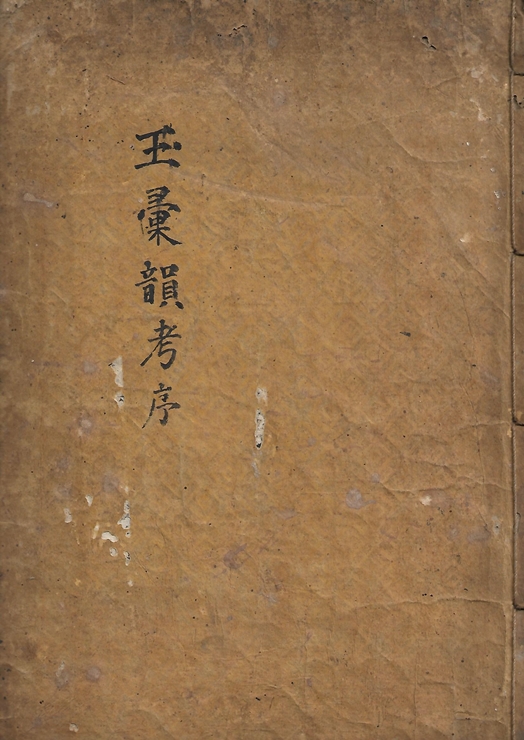 玉彙韻考序